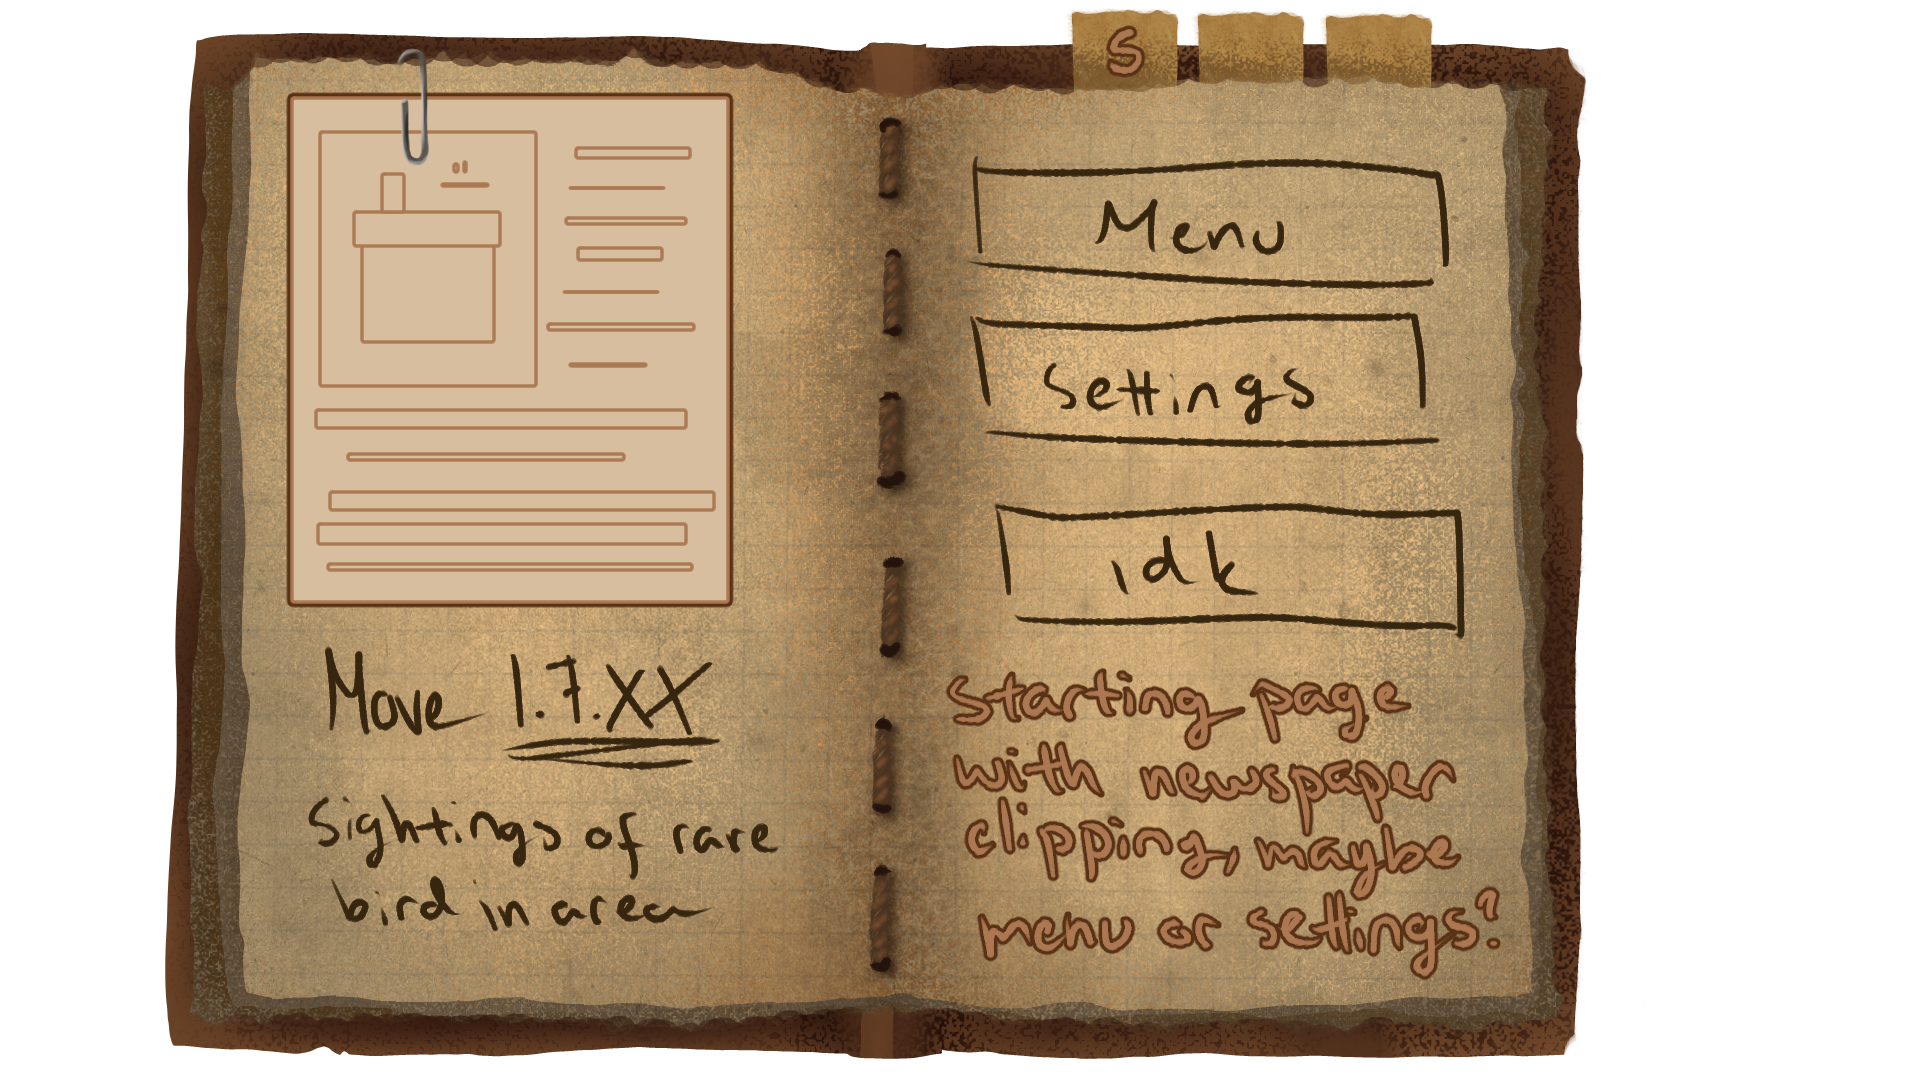 S
Move 1.7.XX
Sightings of rare
bird in area
Menu
Settings
idk
Starting page
with newspaper
clipping, maybe
menu or settings?